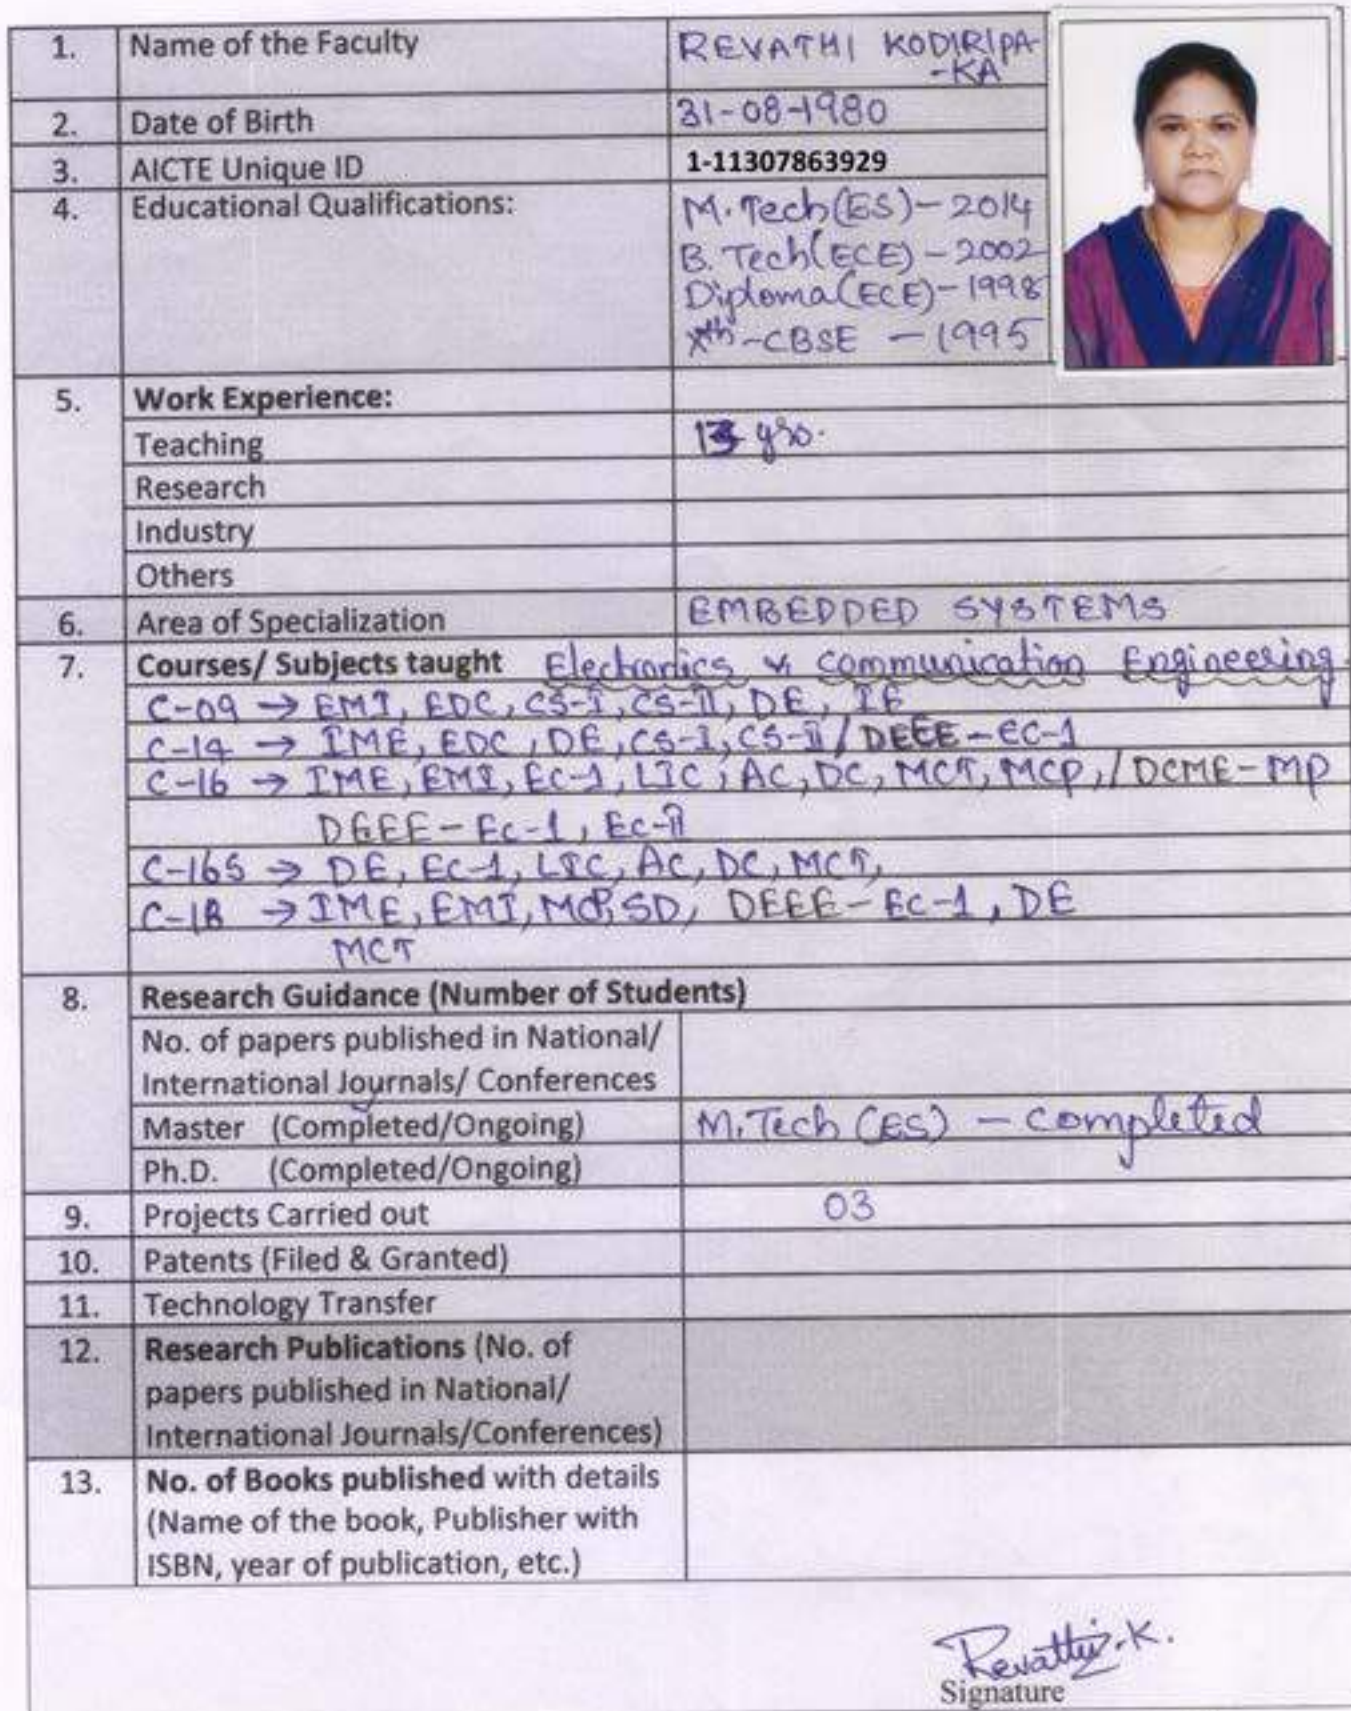 1. Name of the Faculty REVATHI KODIRIPA-
-KA
2. Date of Birth 31-08-1980
3. AICTE Unique ID 1-11307863929
4. Educational Qualifications: M.Tech(ES)-2014
B.Tech(ECE)-2002
Diploma(ECE)-1998
Xth-CBSE-1995
5. Work Experience:
Teaching 13 yrs.
Research
Industry
Others
6. Area of Specialization EMBEDDED SYSTEMS
7. Courses/ Subjects taught Electronics & Communication Engineering
C-09 → EMI, EDC, CS-I, CS-II, DE, IE
C-14 → IME, EDC, DE, CS-I, CS-II / DEEE-EC-1
C-16 → IME, EMI, EC-1, LIC, AC, DC, MCT, MCP, / DCME-MP
DEEE-EC-1, EC-II
C-16S → DE, EC-1, LIC, AC, DC, MCT,
C-18 → IME, EMI, MCP, SD, DEEE-EC-1, DE
MCT
8. Research Guidance (Number of Students)
No. of papers published in National/
International Journals/ Conferences
Master (Completed/Ongoing) M.Tech (ES) - Completed
Ph.D. (Completed/Ongoing)
9. Projects Carried out 03
10. Patents (Filed & Granted)
11. Technology Transfer
12. Research Publications (No. of
papers published in National/
International Journals/Conferences)
13. No. of Books published with details
(Name of the book, Publisher with
ISBN, year of publication, etc.)
Revathi.K.
Signature